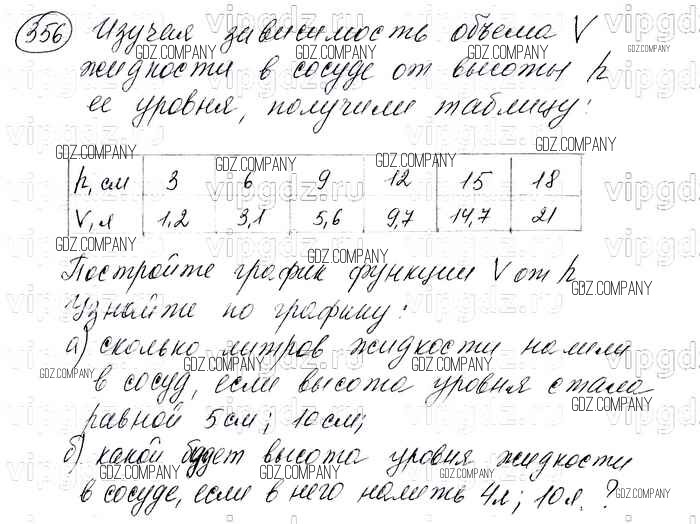 356 Изучая зависимость объема V
жидкости в сосуде от высоты h
ее уровня, получили таблицу:
h, см 3 6 9 12 15 18
V, л 1,2 3,1 5,6 9,7 14,7 21
Постройте график функции V от h
Узнайте по графику:
а) сколько литров жидкости налили
в сосуд, если высота уровня стала
равной 5 см; 10 см;
б) какой будет высота уровня жидкости
в сосуде, если в него налить 4 л; 10 л.?
GDZ.COMPANY
vipgdz.ru